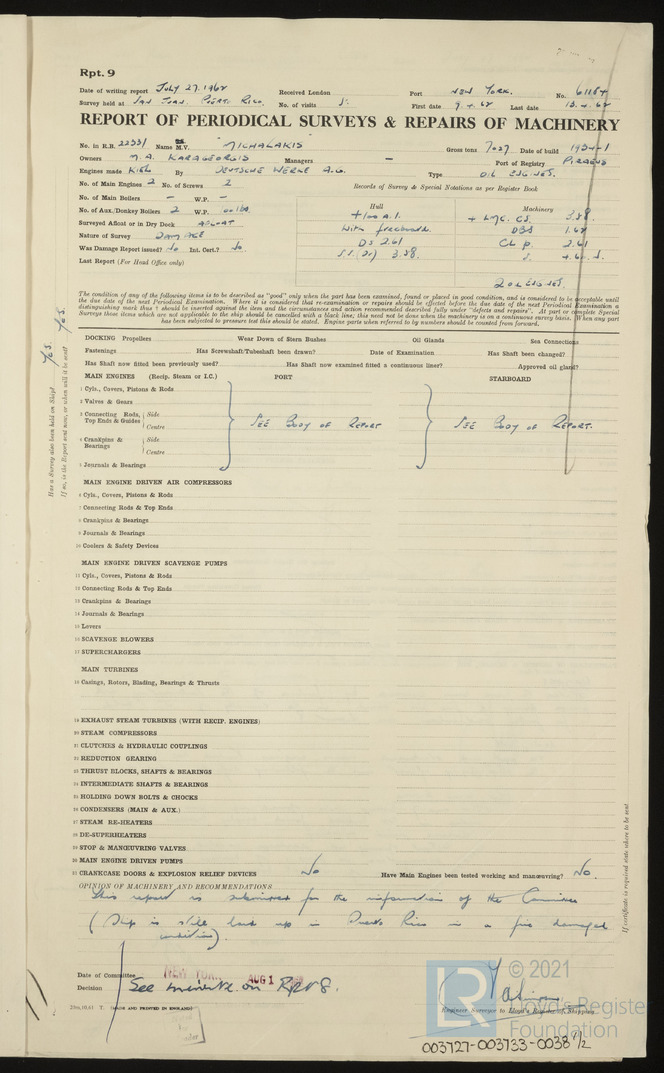 Rpt. 9
Date of writing report July 27. 1962 Received London Port New York. No. 61184
Survey held at San Juan, Puerto Rico. No. of visits First date 9.4.62 Last date 13.4.62
REPORT OF PERIODICAL SURVEYS & REPAIRS OF MACHINERY
No. in R.B. 22331 Name M.V. "MICHALAKIS" Gross tons 7027 Date of build 1934-1
Owners M. A. KARAGEORGIS Managers — Port of Registry PIRAEUS
Engines made KIEL By DEUTSCHE WERKE A.G. Type OIL ENGINES.
No. of Main Engines 2 No. of Screws 2 Records of Survey & Special Notations as per Register Book
No. of Main Boilers — W.P. —
No. of Aux./Donkey Boilers 2 W.P.
Hull Machinery
Surveyed Afloat or in Dry Dock AFLOAT
+100 A.1. + LMC. CS. 3.58.
Nature of Survey DAMAGE
with freeboard. DBS 1.62
Was Damage Report issued? No Int. Cert.? No.
DS 2.61
Last Report (For Head Office only)
3.58.
2 OIL ENGINES.
The condition of any of the following items is to be described as "good" only when the part has been examined, found or placed in good condition, and is considered to be acceptable until
the due date of the next Periodical Examination. Where it is considered that re-examination or repairs should be effected before the due date of the next Periodical Examination a
distinguishing mark thus † should be inserted against the item and the circumstances and action recommended described fully under "defects and repairs". At part or complete Special
Surveys those items which are not applicable to the ship should be cancelled with a black line; this need not be done when the machinery is on a continuous survey basis. When any part
has been subjected to pressure test this should be stated. Engine parts when referred to by numbers should be counted from forward.
DOCKING Propellers Wear Down of Stern Bushes Oil Glands Sea Connections
Fastenings Has Screwshaft/Tubeshaft been drawn? Date of Examination Has Shaft been changed?
Has Shaft now fitted been previously used? Has Shaft now examined fitted a continuous liner? Approved oil gland?
MAIN ENGINES (Recip. Steam or I.C.) PORT STARBOARD
1 Cyls., Covers, Pistons & Rods
2 Valves & Gears
3 Connecting Rods, Top Ends & Guides Side Centre
SEE BODY OF REPORT SEE BODY OF REPORT.
4 Crankpins & Bearings Side Centre
5 Journals & Bearings
MAIN ENGINE DRIVEN AIR COMPRESSORS
6 Cyls., Covers, Pistons & Rods
7 Connecting Rods & Top Ends
8 Crankpins & Bearings
9 Journals & Bearings
10 Coolers & Safety Devices
MAIN ENGINE DRIVEN SCAVENGE PUMPS
11 Cyls., Covers, Pistons & Rods
12 Connecting Rods & Top Ends
13 Crankpins & Bearings
14 Journals & Bearings
15 Levers
16 SCAVENGE BLOWERS
17 SUPERCHARGERS
MAIN TURBINES
18 Casings, Rotors, Blading, Bearings & Thrusts
19 EXHAUST STEAM TURBINES (WITH RECIP. ENGINES)
20 STEAM COMPRESSORS
21 CLUTCHES & HYDRAULIC COUPLINGS
22 REDUCTION GEARING
23 THRUST BLOCKS, SHAFTS & BEARINGS
24 INTERMEDIATE SHAFTS & BEARINGS
25 HOLDING DOWN BOLTS & CHOCKS
26 CONDENSERS (MAIN & AUX.)
27 STEAM RE-HEATERS
28 DE-SUPERHEATERS
29 STOP & MANŒUVRING VALVES
30 MAIN ENGINE DRIVEN PUMPS
31 CRANKCASE DOORS & EXPLOSION RELIEF DEVICES No Have Main Engines been tested working and manœuvring? No.
OPINION OF MACHINERY AND RECOMMENDATIONS
This report is submitted for the information of the Committee
(Ship is still laid up in Puerto Rico in a fire damaged
condition).
Date of Committee NEW YORK AUG 1
Decision See minute on Rpt 8.
(MADE AND PRINTED IN ENGLAND)
Engineer Surveyor to Lloyd's Register of Shipping
Has a Survey also been held on Ship? Yes.
If so, is the Report sent now, or when will it be sent? Yes.
If certificate is required state where to be sent
LR
© 2021
Lloyd's Register
Foundation
003727-003733-0038 1/2